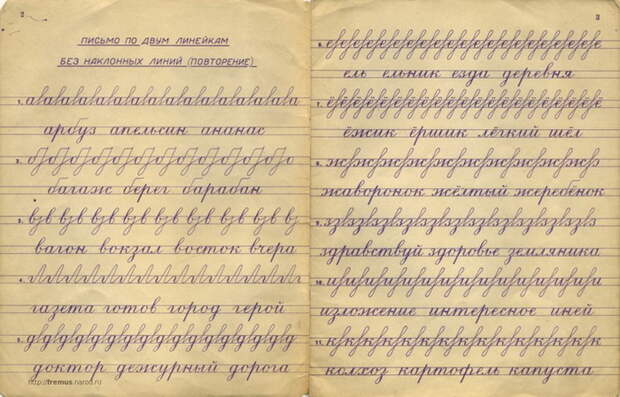 2
ПИСЬМО ПО ДВУМ ЛИНЕЙКАМ
БЕЗ НАКЛОННЫХ ЛИНИЙ (ПОВТОРЕНИЕ)
1.
арбуз апельсин ананас
2.
багаж берег барабан
3.
вагон вокзал восток вчера
4.
газета готов город герой
5.
доктор дежурный дорога
http://tremus.narod.ru
3
6.
ель ельник езда деревня
7.
ёжик ёршик лёгкий шёл
8.
жаворонок жёлтый жеребёнок
9.
здравствуй здоровье земляника
10.
изложение интересное иней
11.
колхоз картофель капуста